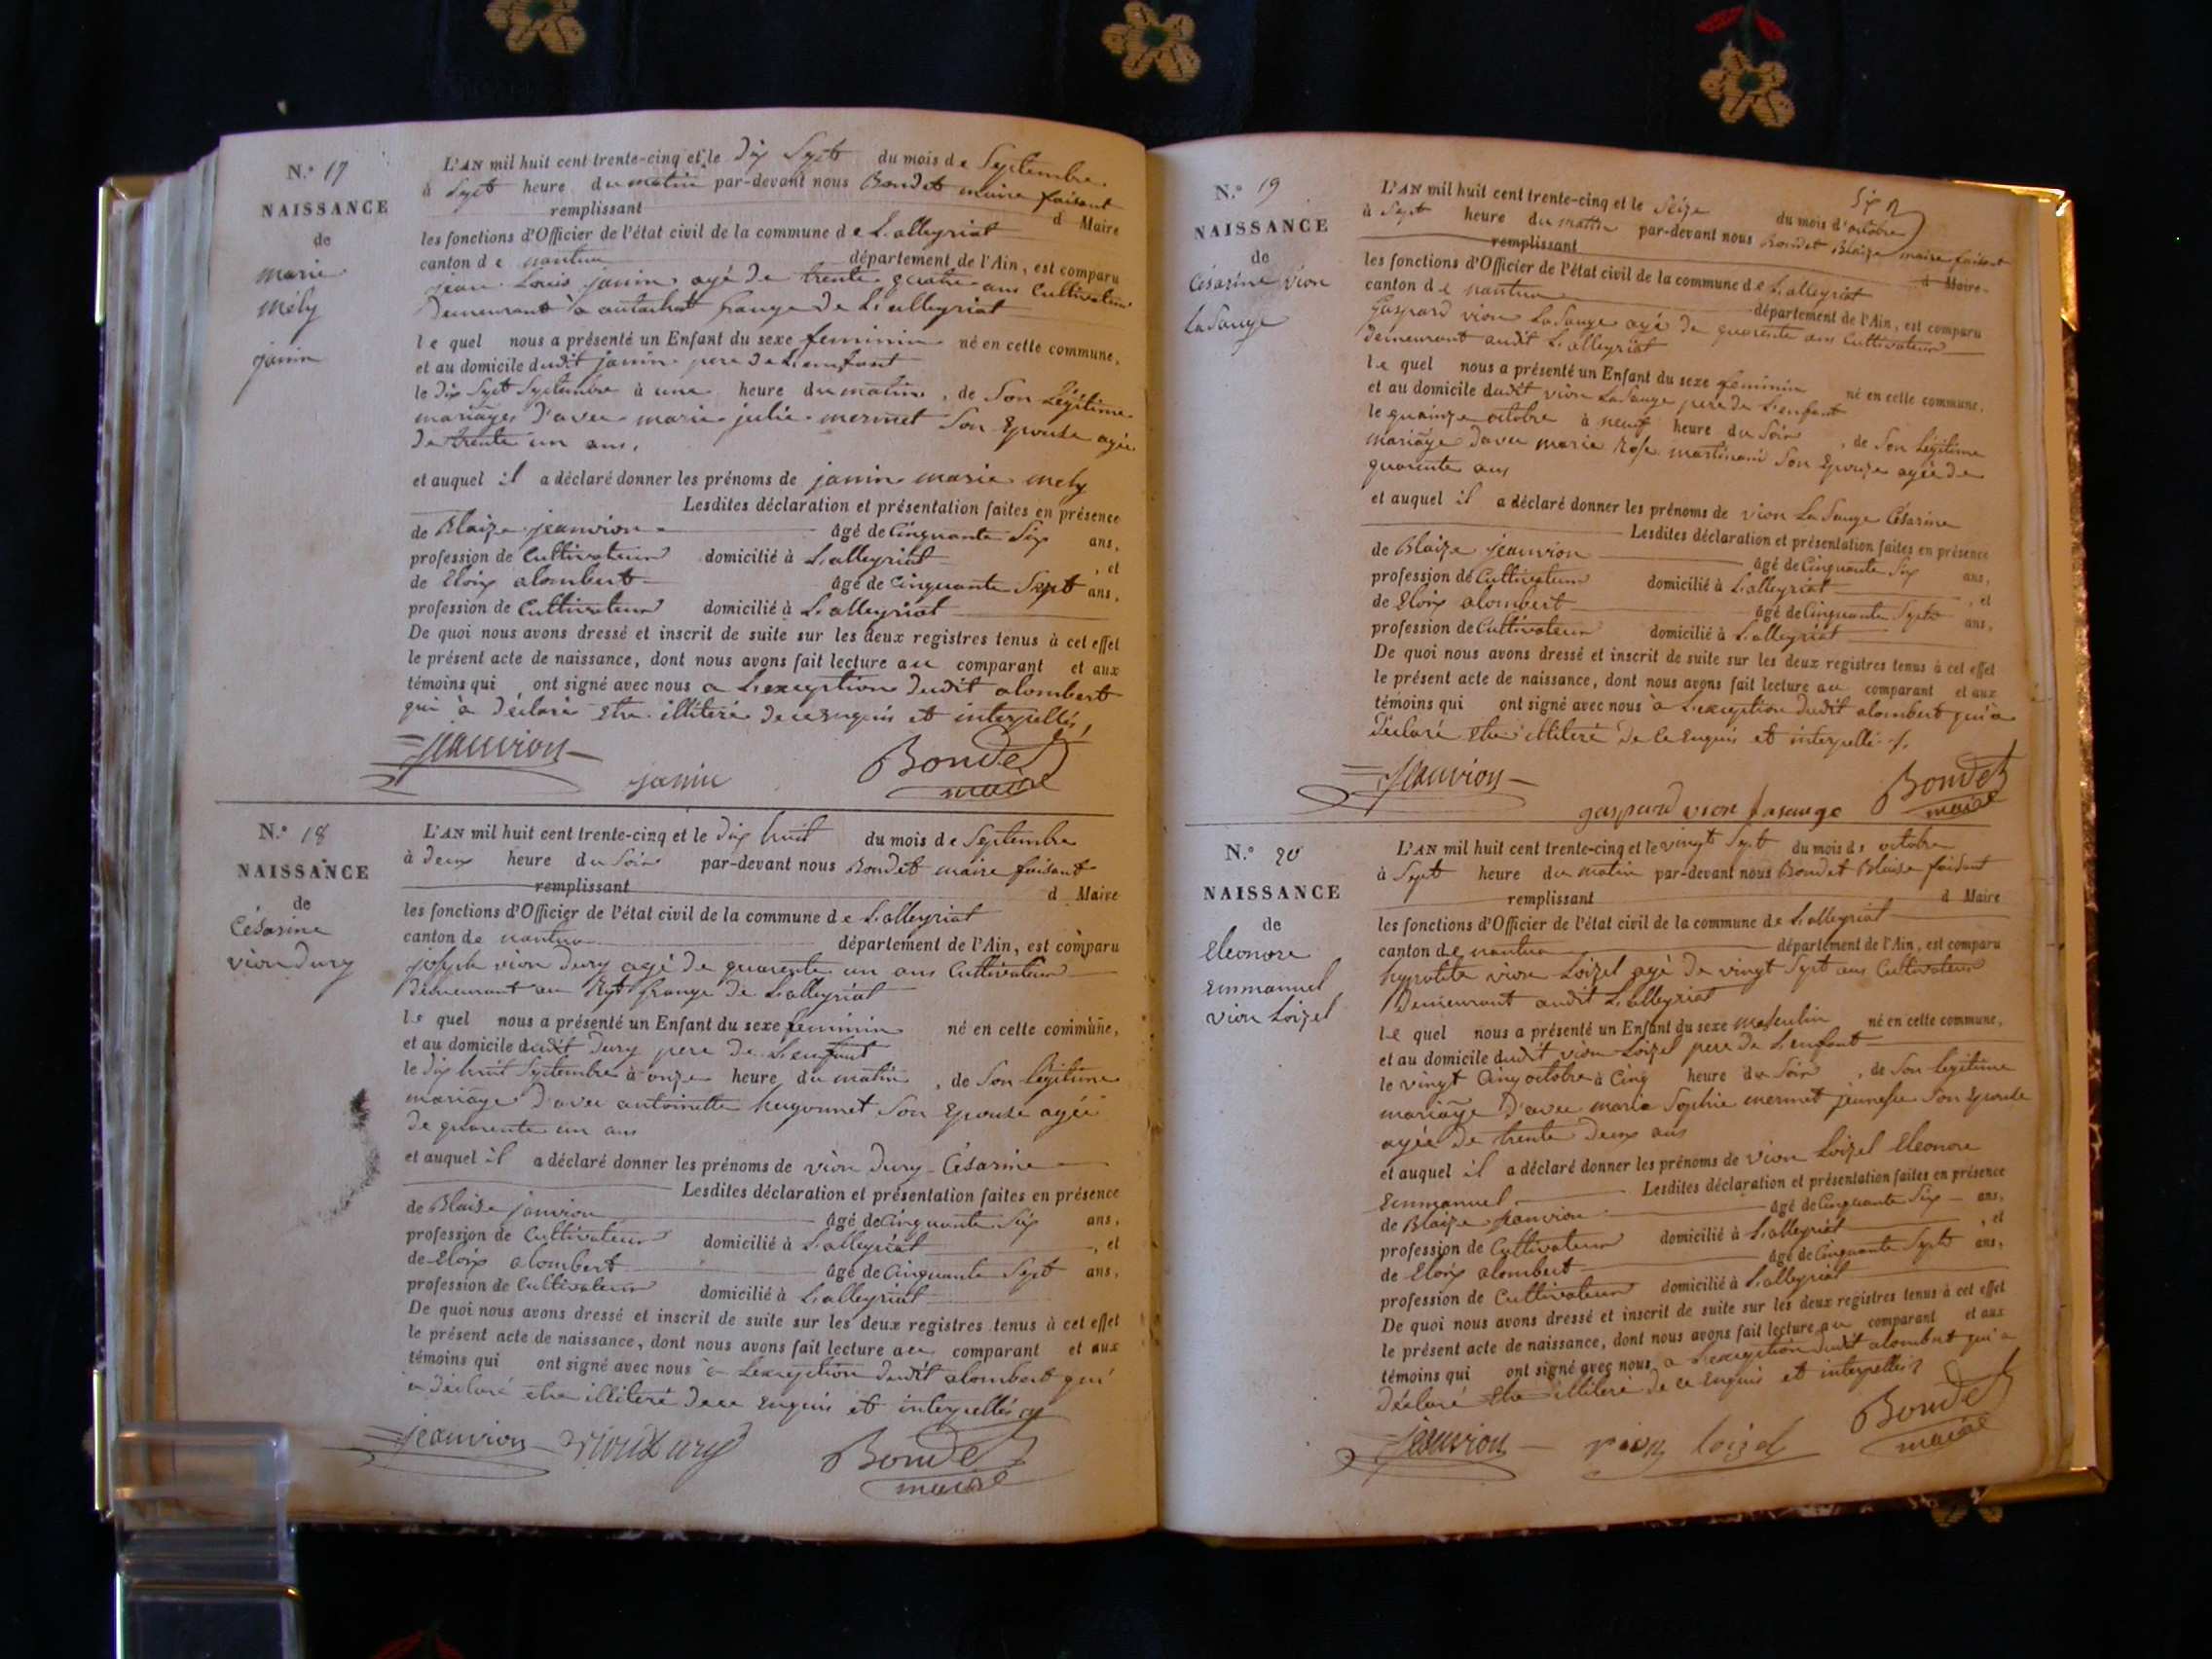 N.° 17
NAISSANCE
de
marie
mély
janin
L'AN mil huit cent trente-cinq et le dix Sept du mois de Septembre
à Sept heure du matin par-devant nous Bondet maire faisant
remplissant d Maire
les fonctions d'Officier de l'état civil de la commune de Lalleyriat
canton de nantua département de l'Ain, est comparu
jean Louis janin agé de trente quatre ans Cultivateur
Demeurant à grange de Lalleyriat
le quel nous a présenté un Enfant du sexe feminin né en cette commune,
et au domicile dudit janin pere de Lenfant
le dix Sept Septembre à une heure du matin, de Son Légitime
mariage d'avec marie julie mermet Son Epouse agée
de trente un ans,
et auquel il a déclaré donner les prénoms de janin marie mely
Lesdites déclaration et présentation faites en présence
de Blaize jeanvion âgé de Cinquante Six ans,
profession de Cultivateur domicilié à Lalleyriat, et
de Eloix alombert âgé de Cinquante Sept ans,
profession de Cultivateur domicilié à Lalleyriat
De quoi nous avons dressé et inscrit de suite sur les deux registres tenus à cet effet
le présent acte de naissance, dont nous avons fait lecture au comparant et aux
témoins qui ont signé avec nous a Lexception dudit alombert
qui à déclaré Etre illiteré de ce enquis et interpellés,
jeanvion
janin
Bondet
maire
N.° 18
NAISSANCE
de
Césarine
vion Dury
L'AN mil huit cent trente-cinq et le dix huit du mois de Septembre
à deux heure du Soir par-devant nous Bondet maire faisant
remplissant d Maire
les fonctions d'Officier de l'état civil de la commune de Lalleyriat
canton de nantua département de l'Ain, est comparu
joseph vion Dury agé de quarente un ans Cultivateur
demeurant au grange de Lalleyriat
le quel nous a présenté un Enfant du sexe feminin né en cette commune,
et au domicile dudit Dury pere de Lenfant
le dix huit Septembre à onze heure du matin, de Son légitime
mariage d'avec antoinette hugonnet Son Epouse agée
de quarente un ans
et auquel il a déclaré donner les prénoms de vion Dury Césarine
Lesdites déclaration et présentation faites en présence
de Blaize janvion âgé de Cinquante Six ans,
profession de Cultivateur domicilié à Lalleyriat, et
de Eloix alombert âgé de Cinquante Sept ans,
profession de Cultivateur domicilié à Lalleyriat
De quoi nous avons dressé et inscrit de suite sur les deux registres tenus à cet effet
le présent acte de naissance, dont nous avons fait lecture au comparant et aux
témoins qui ont signé avec nous à Lexception dudit alombert qui
a déclaré etre illiteré de ce Enquis et interpellés
jeanvion
vion Dury
Bondet
maire
Six
N.° 19
NAISSANCE
de
Césarine vion
LaSauge
L'AN mil huit cent trente-cinq et le Seize du mois d'octobre
à Sept heure du matin par-devant nous Bondet Blaize maire faisant
remplissant d Maire
les fonctions d'Officier de l'état civil de la commune de Lalleyriat
canton de nantua département de l'Ain, est comparu
Gaspard vion LaSauge agé de quarente ans Cultivateur
demeurant audit Lalleyriat
le quel nous a présenté un Enfant du sexe feminin né en cette commune,
et au domicile dudit vion LaSauge pere de Lenfant
le quainze octobre à neuf heure du Soir, de Son Légitime
mariage davec marie Rose Son Epouze agée de
quarente ans
et auquel il a déclaré donner les prénoms de vion La Sauge Césarine
Lesdites déclaration et présentation faites en présence
de Blaize jeanvion âgé de Cinquante Six ans,
profession de Cultivateur domicilié à Lalleyriat, et
de Eloix alombert âgé de Cinquante Sept ans,
profession de Cultivateur domicilié à Lalleyriat
De quoi nous avons dressé et inscrit de suite sur les deux registres tenus à cet effet
le présent acte de naissance, dont nous avons fait lecture au comparant et aux
témoins qui ont signé avec nous à Lexception dudit alombert qui a
déclaré Etre illiteré de ce Enquis et interpellé
jeanvion
gaspard vion lasauge
Bondet
maire
N.° 20
NAISSANCE
de
Eleonore
Emmanuel
vion Loizel
L'AN mil huit cent trente-cinq et le vingt Sept du mois de octobre
à Sept heure du matin par-devant nous Bondet Blaise faisant
remplissant d Maire
les fonctions d'Officier de l'état civil de la commune de Lalleyriat
canton de nantua département de l'Ain, est comparu
hypolite vion Loizel agé de vingt Sept ans Cultivateur
Demeurant audit Lalleyriat
le quel nous a présenté un Enfant du sexe masculin né en cette commune,
et au domicile dudit vion Loizel pere de Lenfant
le vingt Cinq octobre à Cinq heure du Soir, de Son legitime
mariage D'avec maria Sophie mermet jeunesse Son Epouse
agée de trente Deux ans
et auquel il a déclaré donner les prénoms de vion Loizel Eleonore
Emmanuel Lesdites déclaration et présentation faites en présence
de Blaize jeanvion âgé de Cinquante Six ans,
profession de Cultivateur domicilié à Lalleyriat, et
de Eloix alombert âgé de Cinquante Sept ans,
profession de Cultivateur domicilié à Lalleyriat
De quoi nous avons dressé et inscrit de suite sur les deux registres tenus à cet effet
le présent acte de naissance, dont nous avons fait lecture au comparant et aux
témoins qui ont signé avec nous a Lexception dudit alombert qui a
Déclaré Etre illiteré de ce Enquis et interpellés
jeanvion
vion loizel
Bondet
maire